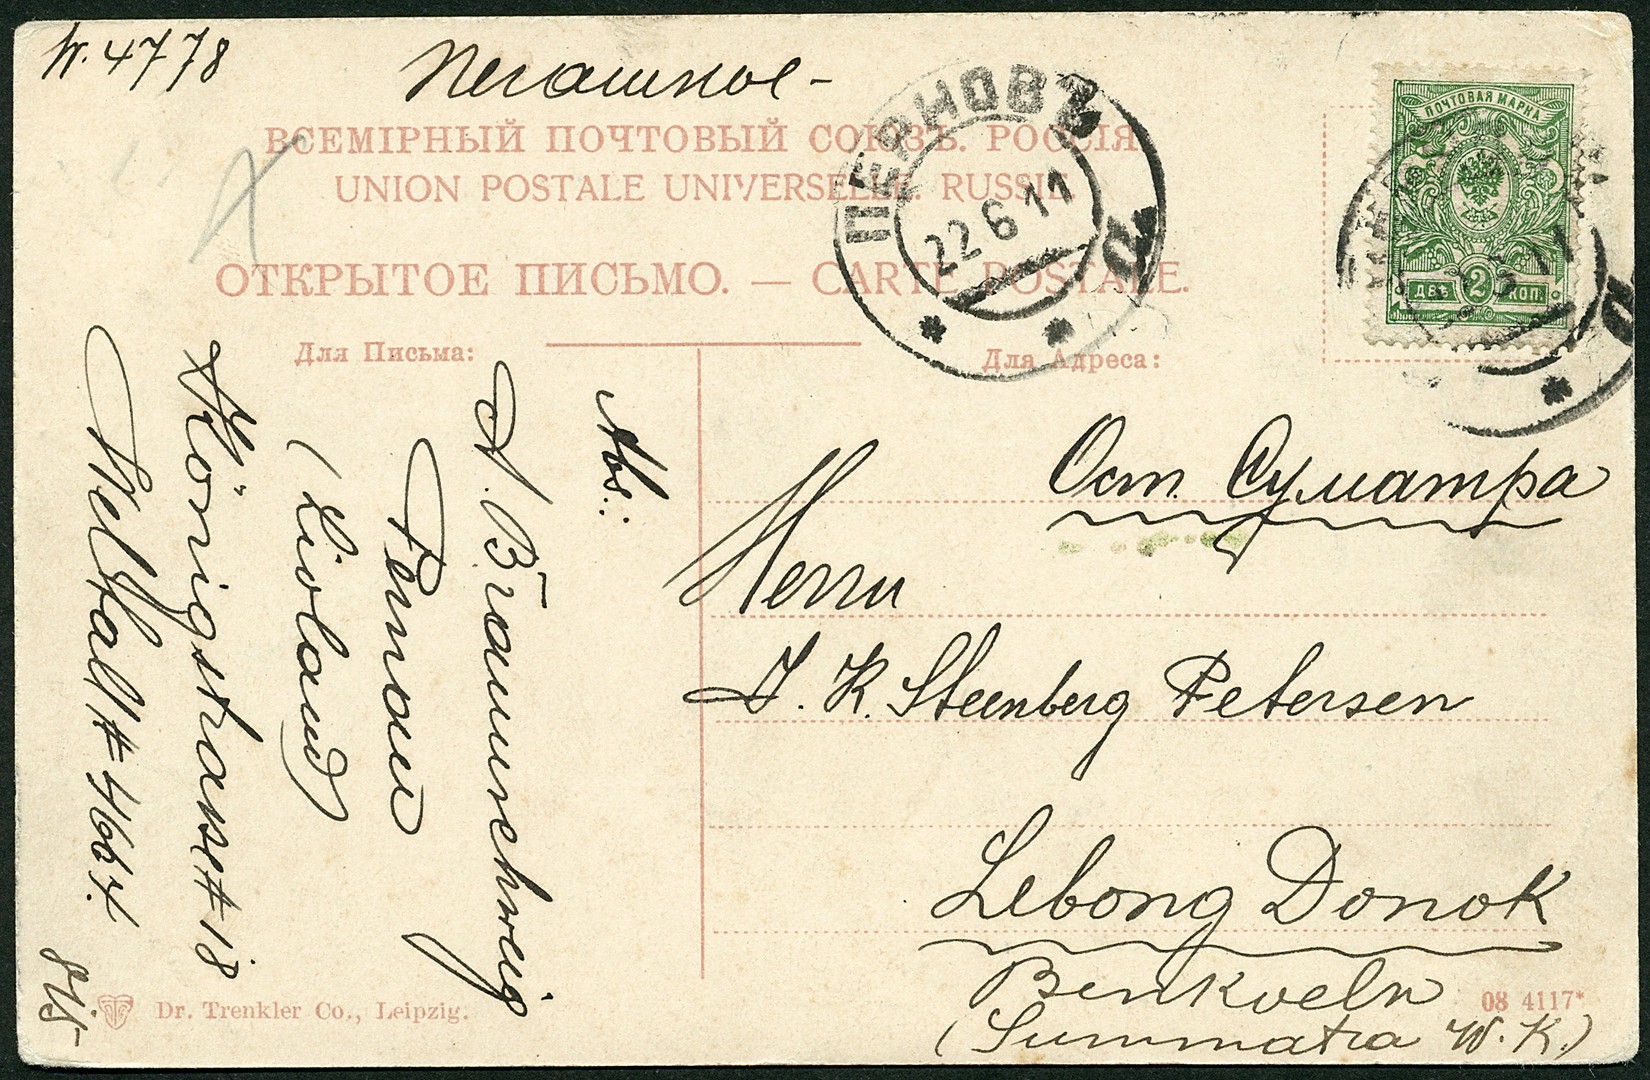 N. 4778
Печатное -
ВСЕМІРНЫЙ ПОЧТОВЫЙ СОЮЗЪ. РОССІЯ
UNION POSTALE UNIVERSELLE. RUSSIE
ОТКРЫТОЕ ПИСЬМО. — CARTE POSTALE.
ПЕРНОВЪ
22 6 11
ПОЧТОВАЯ МАРКА
ДВѢ 2 КОП.
Для Письма:
Для Адреса:
Abs.:
A. Braunschweig
Pernau
(Livland)
Königstrasse # 18
Weltall # 4667.
Ост. Суматра
Herrn
J. K. Steenberg Petersen
Lebong Donok
Benkoeln
(Summatra W. K.)
Dr. Trenkler Co., Leipzig.
08 4117*